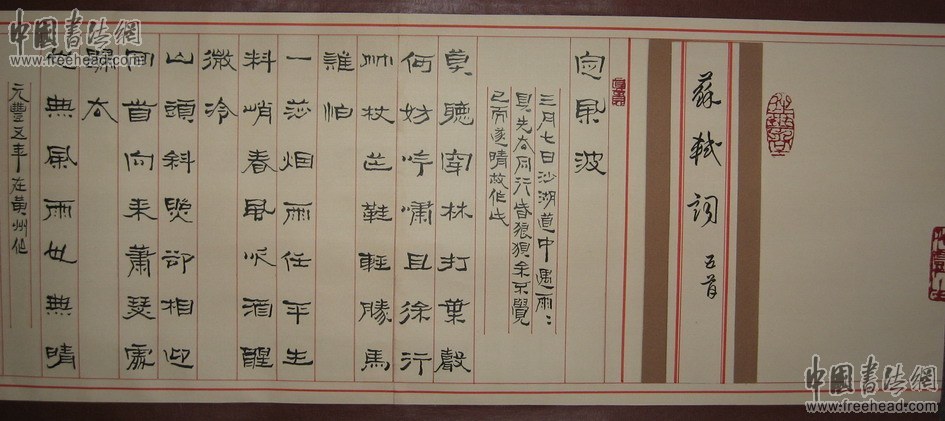 中國書法網
www.freehead.com
蘇軾詞 五首
定風波
三月七日沙湖道中遇雨〻
具先去同行皆狼狽余不覺
已而遂晴故作此
莫聽穿林打葉聲
何妨吟嘯且徐行
竹杖芒鞋輕勝馬
誰怕
一莎烟雨任平生
料峭春風吹酒醒
微冷
山頭斜照却相迎
回首向來蕭瑟處
歸去
也無風雨也無晴
元豐五年在黃州作
中國書法網
www.freehead.com